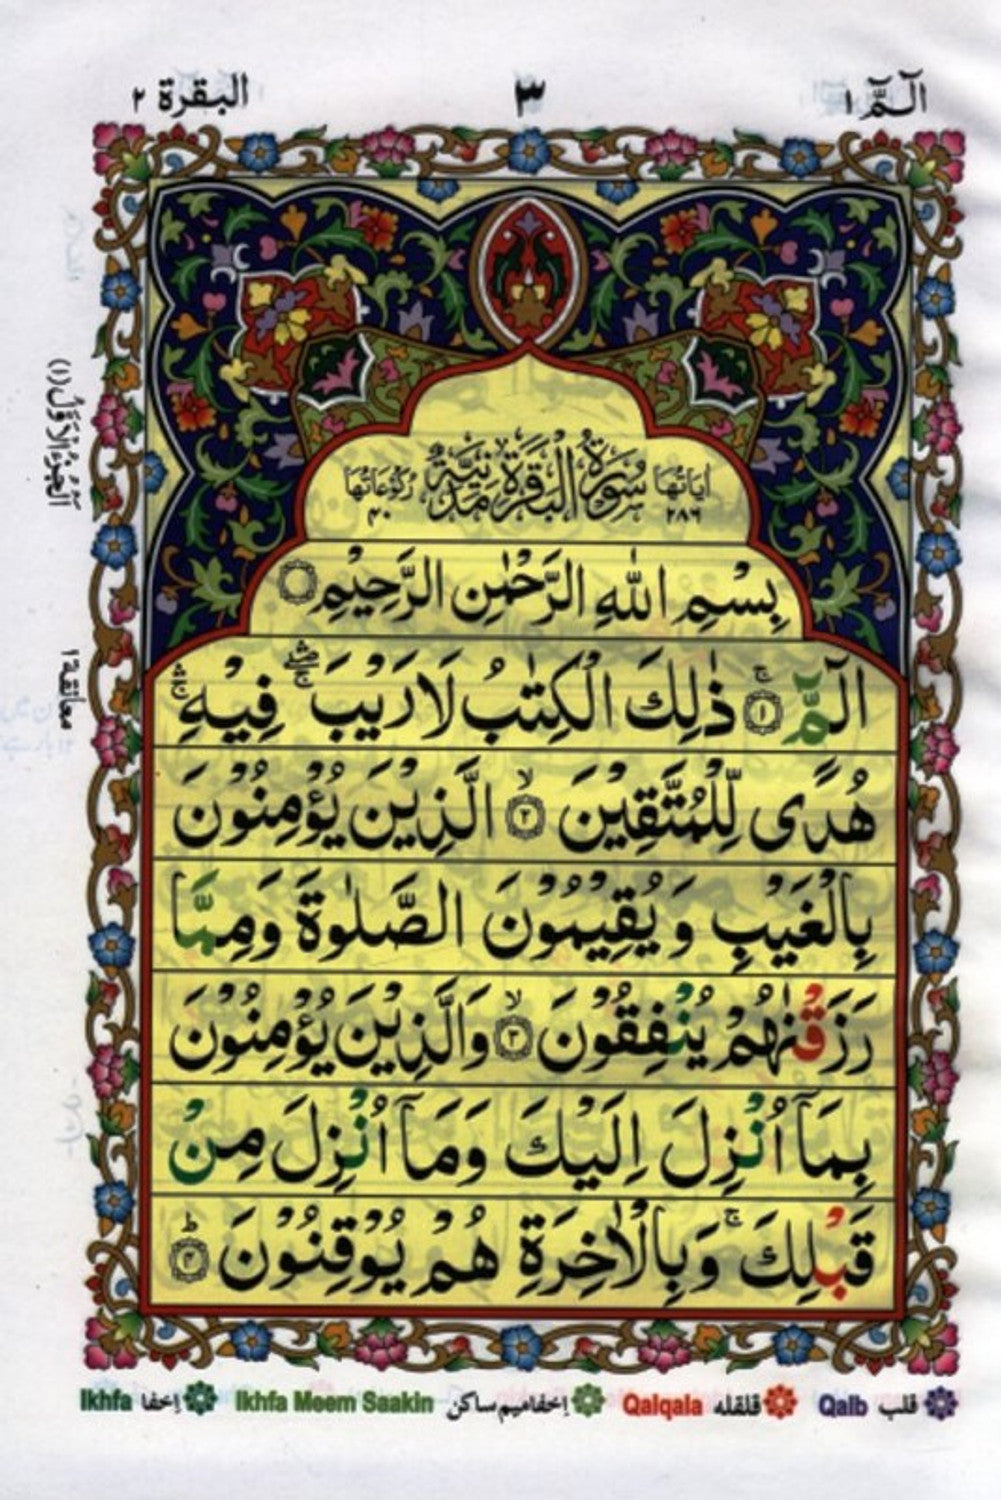 الٓـمّٓ ١
٣
البقرة ٢
اٰيَاتُهَا ٢٨٦
سُوْرَةُ الْبَقَرَةِ مَدَنِيَّةٌ
رُكُوْعَاتُهَا ٤٠
بِسْمِ اللّٰهِ الرَّحْمٰنِ الرَّحِيْمِ ۝
الٓـمّٓ ۚ﴿١﴾ ذٰلِكَ الْكِتٰبُ لَا رَيْبَ ۛۖۚ فِيْهِ ۛۚ
هُدًى لِّلْمُتَّقِيْنَ ۙ﴿٢﴾ الَّذِيْنَ يُؤْمِنُوْنَ
بِالْغَيْبِ وَيُقِيْمُوْنَ الصَّلٰوةَ وَمِمَّا
رَزَقْنٰهُمْ يُنْفِقُوْنَ ۙ﴿٣﴾ وَالَّذِيْنَ يُؤْمِنُوْنَ
بِمَآ اُنْزِلَ اِلَيْكَ وَمَآ اُنْزِلَ مِنْ
قَبْلِكَ ۚ وَبِالْاٰخِرَةِ هُمْ يُوْقِنُوْنَ ؕ﴿٤﴾
اَلْجُزْءُ الْاَوَّلُ (١)
معانقة ١
قلب Qalb
قلقله Qalqala
إخفاميم ساكن Ikhfa Meem Saakin
إخفا Ikhfa